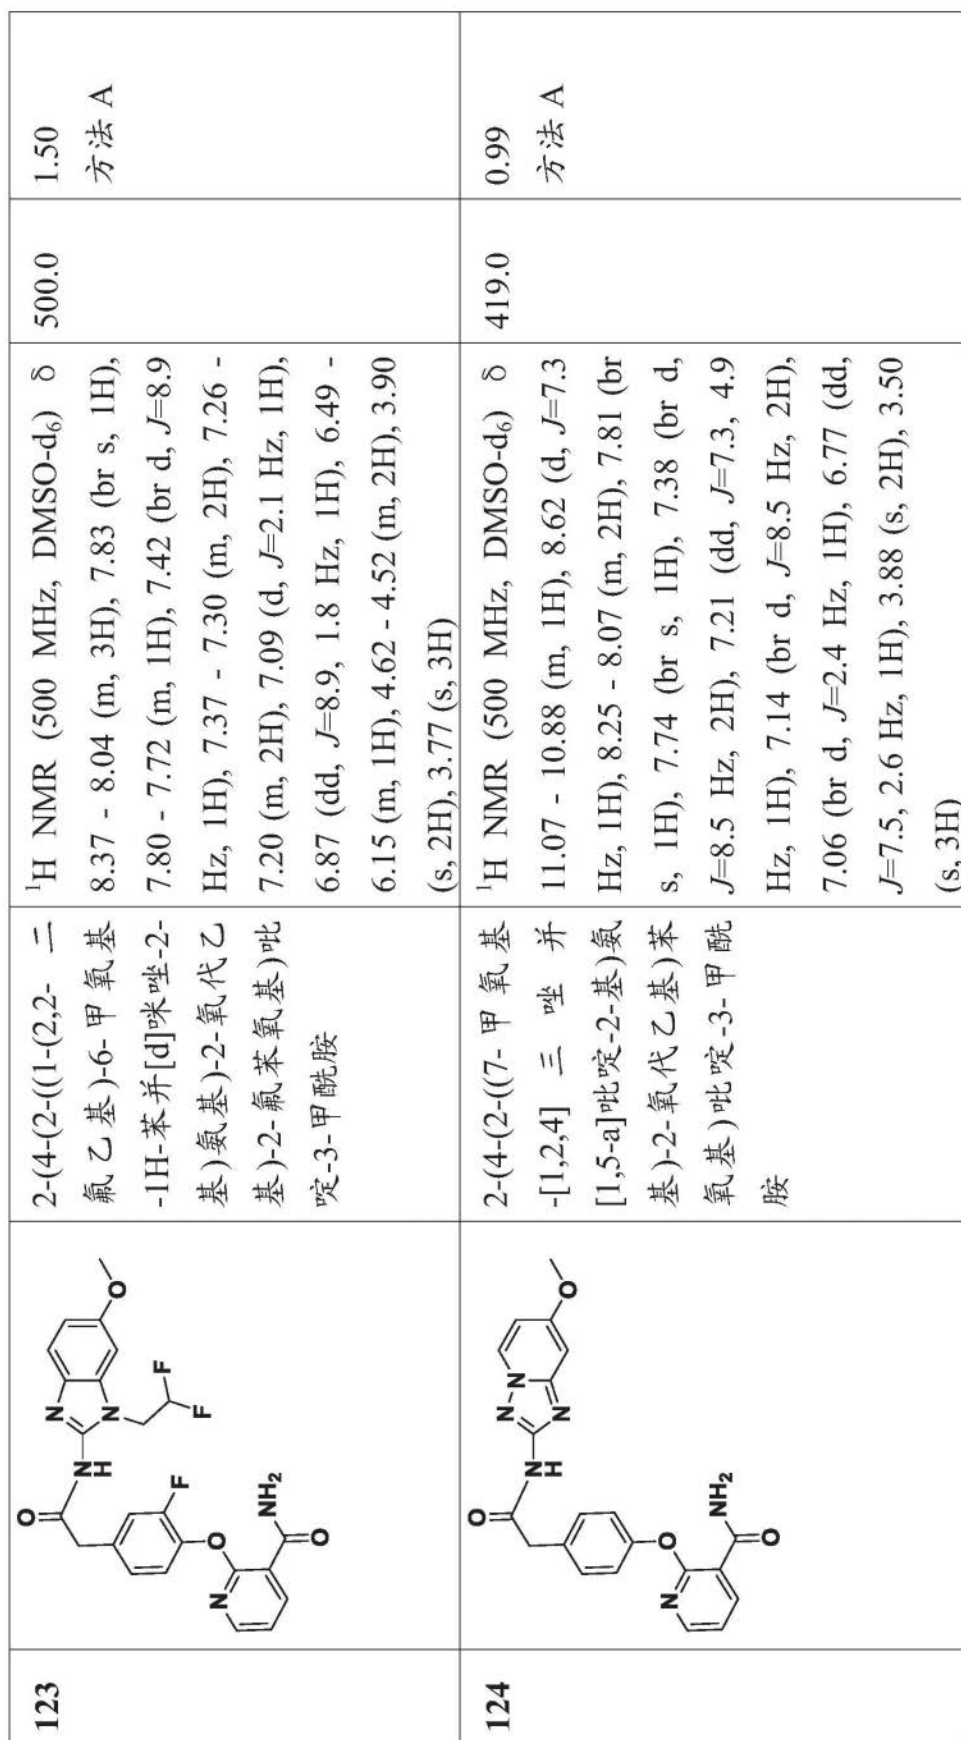 123
O
N
H
N
N
O
F
F
F
O
N
NH2
O
2-(4-(2-((1-(2,2- 二
氟乙基)-6-甲氧基
-1H-苯并[d]咪唑-2-
基)氨基)-2-氧代乙
基)-2-氟苯氧基)吡
啶-3-甲酰胺
¹H NMR (500 MHz, DMSO-d₆) δ
8.37 - 8.04 (m, 3H), 7.83 (br s, 1H),
7.80 - 7.72 (m, 1H), 7.42 (br d, J=8.9
Hz, 1H), 7.37 - 7.30 (m, 2H), 7.26 -
7.20 (m, 2H), 7.09 (d, J=2.1 Hz, 1H),
6.87 (dd, J=8.9, 1.8 Hz, 1H), 6.49 -
6.15 (m, 1H), 4.62 - 4.52 (m, 2H), 3.90
(s, 2H), 3.77 (s, 3H)
500.0
1.50
方法 A
124
O
N
H
N
N
N
O
O
N
NH2
O
2-(4-(2-((7- 甲氧基
-[1,2,4] 三 唑 并
[1,5-a]吡啶-2-基)氨
基)-2-氧代乙基)苯
氧基)吡啶-3-甲酰
胺
¹H NMR (500 MHz, DMSO-d₆) δ
11.07 - 10.88 (m, 1H), 8.62 (d, J=7.3
Hz, 1H), 8.25 - 8.07 (m, 2H), 7.81 (br
s, 1H), 7.74 (br s, 1H), 7.38 (br d,
J=8.5 Hz, 2H), 7.21 (dd, J=7.3, 4.9
Hz, 1H), 7.14 (br d, J=8.5 Hz, 2H),
7.06 (br d, J=2.4 Hz, 1H), 6.77 (dd,
J=7.5, 2.6 Hz, 1H), 3.88 (s, 2H), 3.50
(s, 3H)
419.0
0.99
方法 A